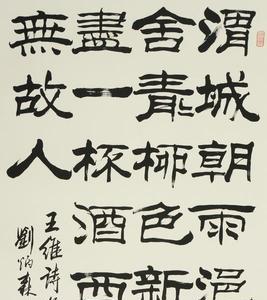 渭城朝雨浥
舍青柳色新
盡一杯酒西
無故人
王維詩
劉炳森